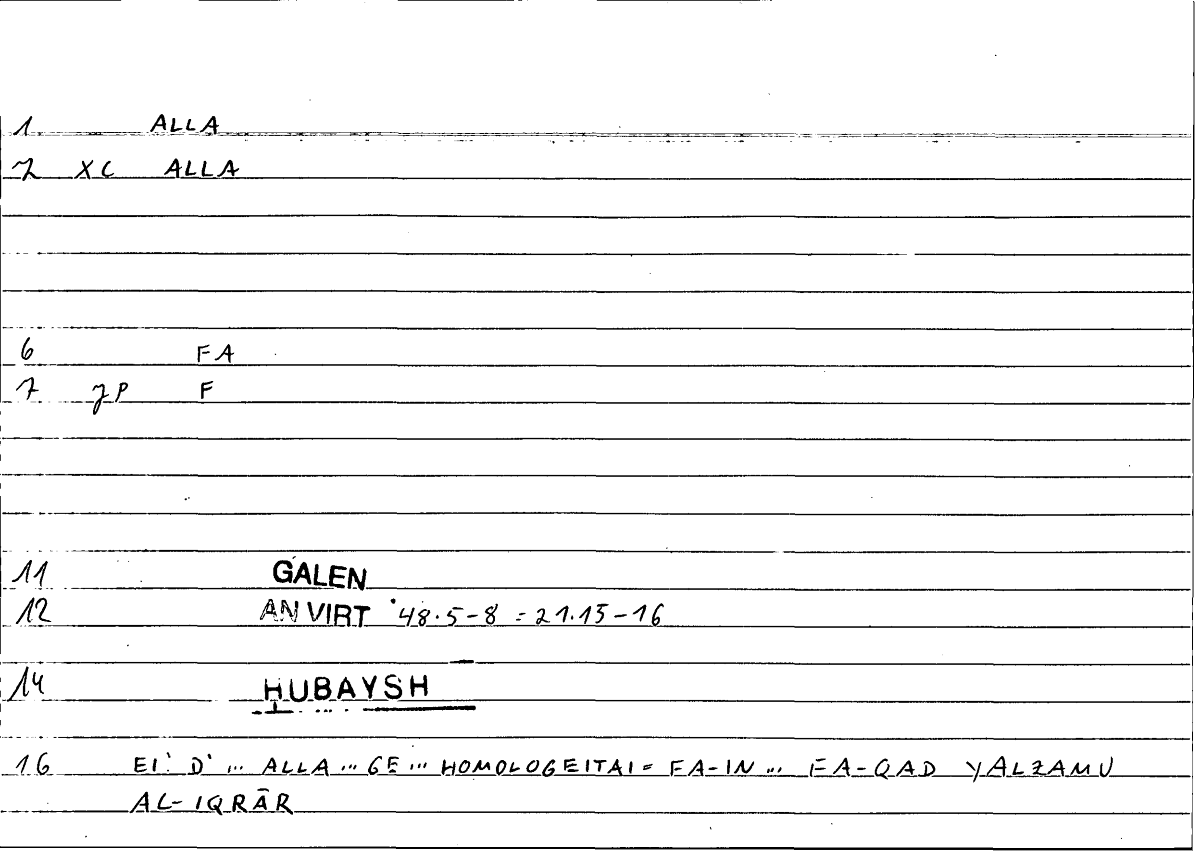 1 ALLA
2 XC ALLA
6 FA
7 JP F
11 GALEN
12 AN VIRT 48.5-8 = 21.15-16
14 HUBAYSH
16 EI' D' ... ALLA ... GE ... HOMOLOGEITAI = FA-IN ... FA-QAD YALZAMU
AL-IQRĀR